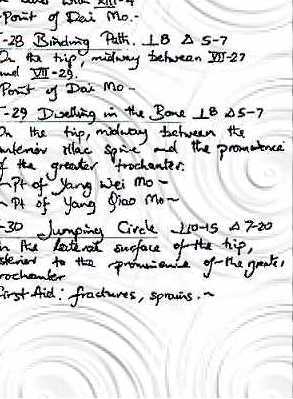 with XIII-4
-Point of Dai Mo.-
-28 Binding Path. ⊥8 Δ 5-7
On the hip, midway between VII-27
and VII-29.
Point of Dai Mo -
-29 Dwelling in the Bone ⊥8 Δ5-7
On the hip, midway between the
anterior iliac spine and the prominence
of the greater trochanter.
Pt of Yang Wei Mo -
Pt of Yang Qiao Mo -
-30 Jumping Circle ⊥10-15 Δ 7-20
On the lateral surface of the hip,
to the prominence of the greater
trochanter
First-Aid: fractures, sprains. ~